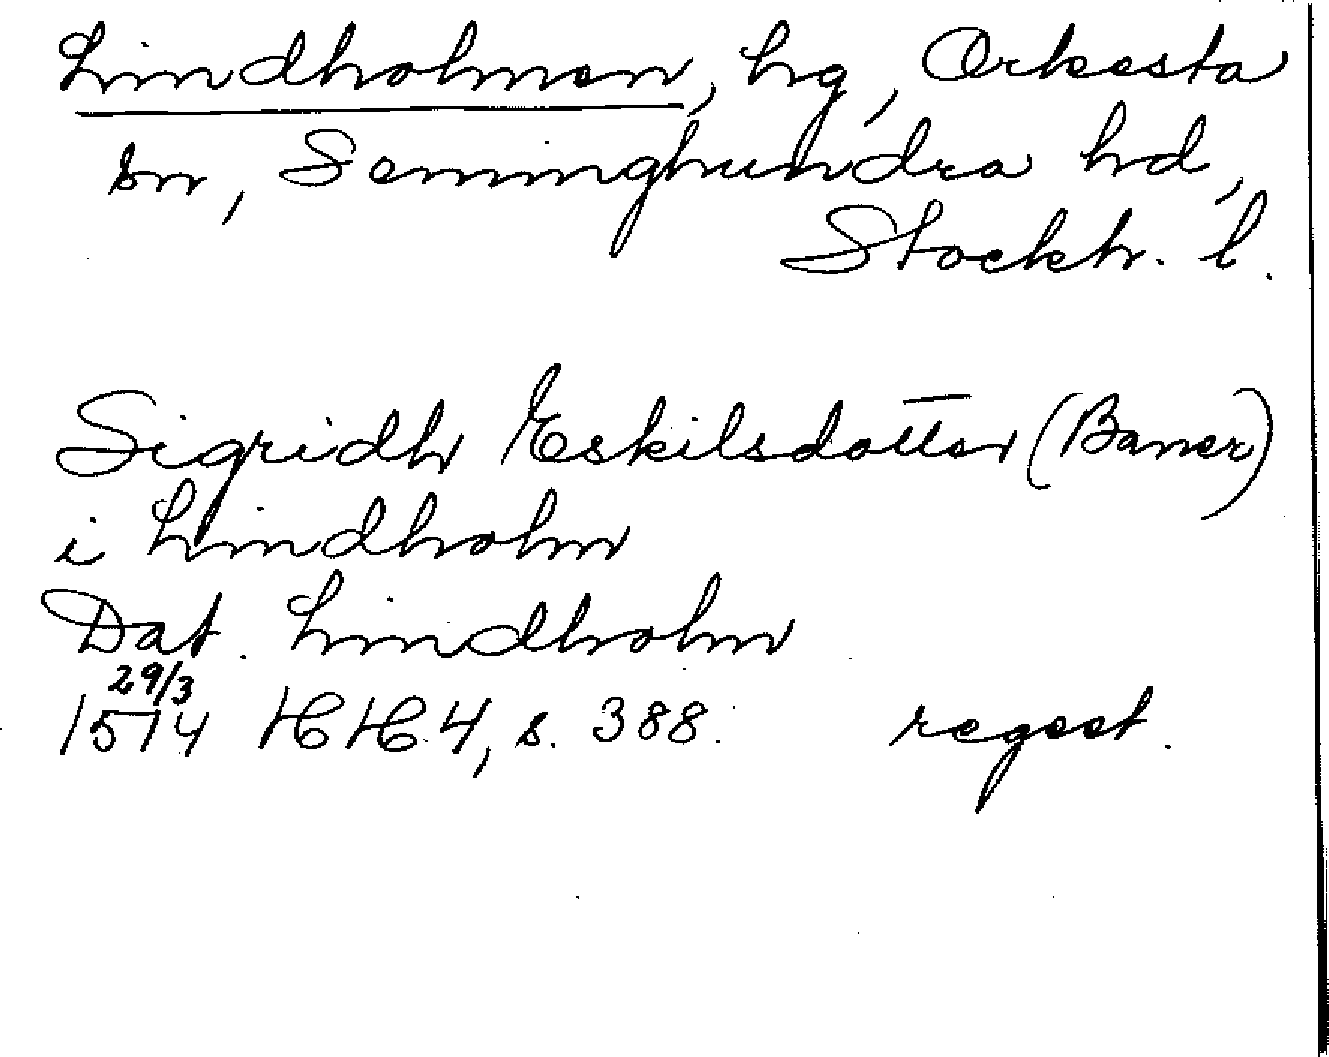 Lindholmen, hg, Orkesta
sn, Seminghundra hd,
Stockh. l.
Sigridh Eskilsdotter (Baner)
i Lindholm
Dat. Lindholm
29/3
1574 HH 4, s. 388. regest.